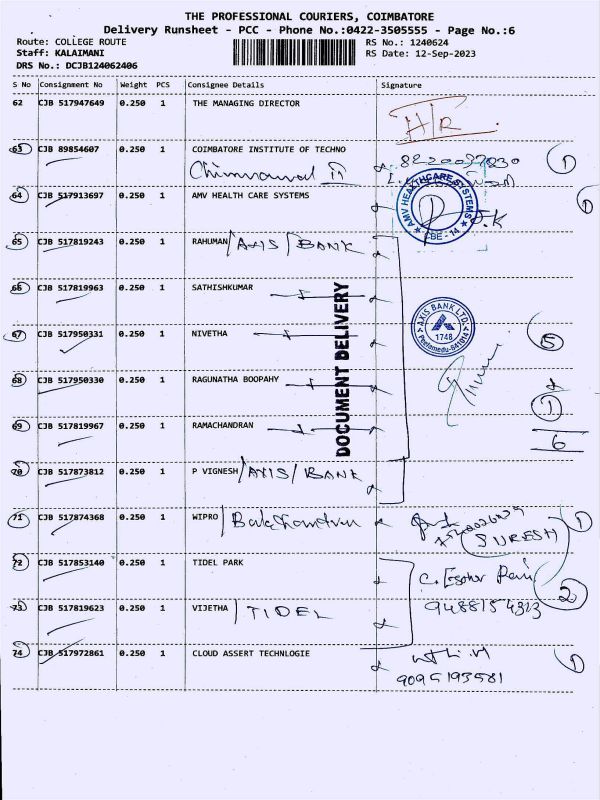 THE PROFESSIONAL COURIERS, COIMBATORE
Delivery Runsheet - PCC - Phone No.:0422-3505555 - Page No.:6
Route: COLLEGE ROUTE
RS No.: 1240624
Staff: KALAIMANI
RS Date: 12-Sep-2023
DRS No.: DCJB124062406
S No Consignment No Weight PCS Consignee Details Signature
62 CJB 517947649 0.250 1 THE MANAGING DIRECTOR
H/R
63 CJB 89854607 0.250 1 COIMBATORE INSTITUTE OF TECHNO
1
64 CJB 517913697 0.250 1 AMV HEALTH CARE SYSTEMS
AMV HEALTHCARE SYSTEMS
CBE - 14
1
65 CJB 517819243 0.250 1 RAHUMAN / AXIS / BANK
66 CJB 517819963 0.250 1 SATHISHKUMAR
DOCUMENT DELIVERY
67 CJB 517950331 0.250 1 NIVETHA
AXIS BANK LTD.
1748
5
68 CJB 517950330 0.250 1 RAGUNATHA BOOPAHY
1
69 CJB 517819967 0.250 1 RAMACHANDRAN
6
70 CJB 517873812 0.250 1 P VIGNESH / AXIS / BANK
71 CJB 517874368 0.250 1 WIPRO
SURESH
1
72 CJB 517853140 0.250 1 TIDEL PARK
2
73 CJB 517819623 0.250 1 VIJETHA / TIDEL
74 CJB 517972861 0.250 1 CLOUD ASSERT TECHNLOGIE
9095193581
1